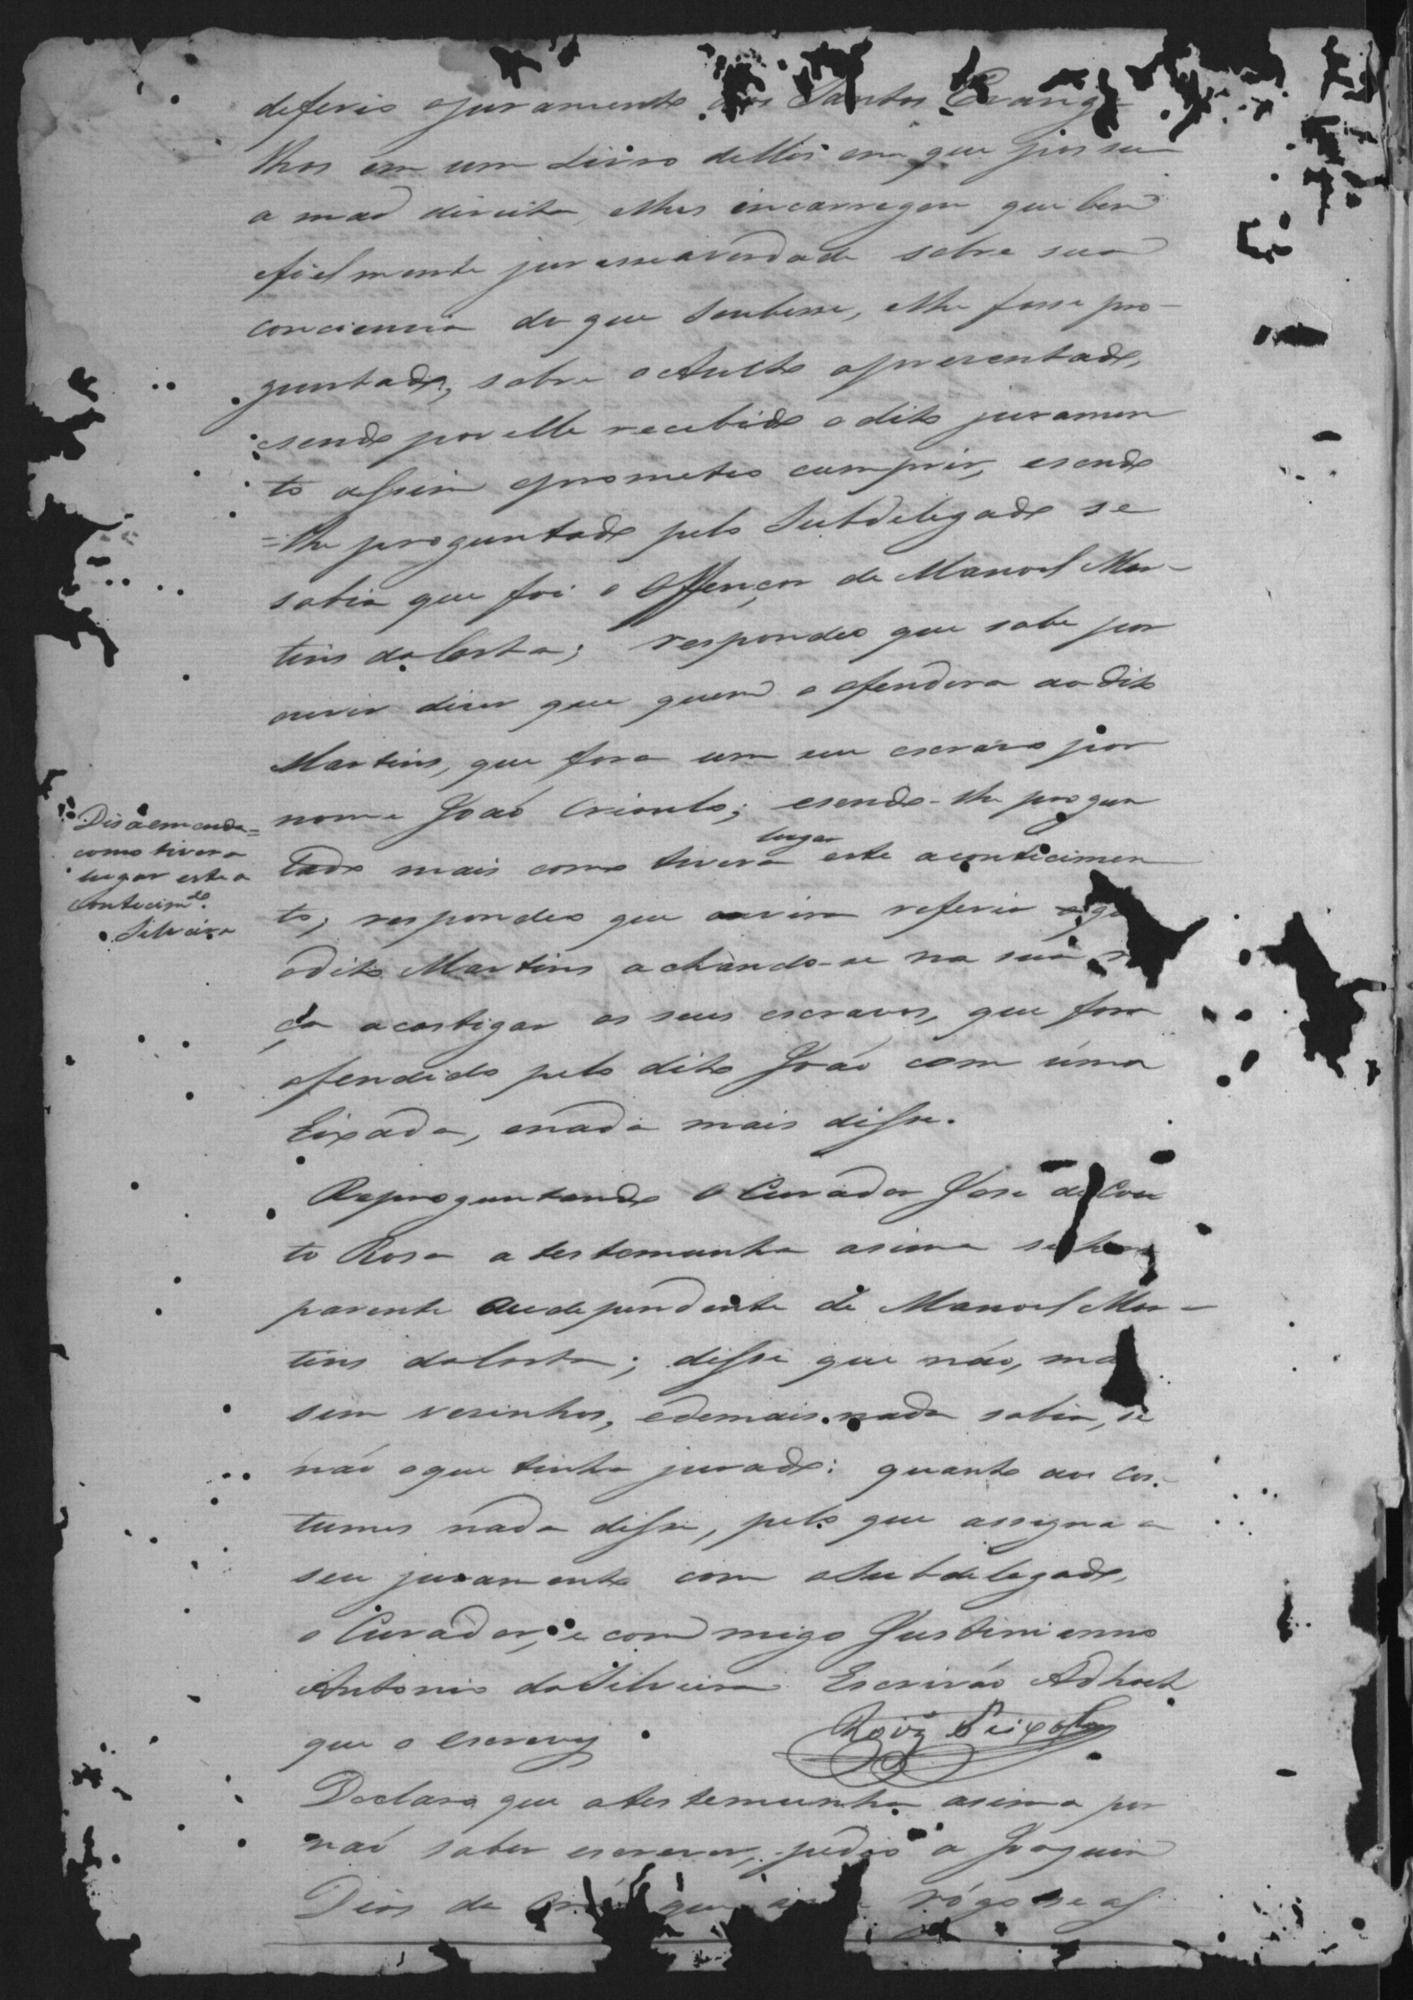 deferio ojuramento dos Santos Evang-
lhos em um Livro delles em que pos sua
a maõ direita elhes incarregou que bem
efielmente jurasse averdade sobre sua
conciencia do que Soubesse, elhe fosse pro-
guntado, sobre oAulto apresentado,
esendo por elle recebido odito juramen
to assim oprometeo cumprir, esendo
=lhe proguntado pelo Subdelegado se
sabia que foi o Offençor de Manoel Mar-
tins daCosta; respondeo que sabe por
ouvir dizer que quem o ofendera ao dito
Martins, que fora um seu escravo por
nome Joaõ Crioulo; esendo-lhe progun
tado mais como tivera lugar este aconticimen
to; respondeo que ouvira referir que
odito Martins achando-se na sua r
ça acastigar os seus escravos, que fora
ofendido pelo dito Joaõ com uma
Eixada, enada mais disse.
Disaemenda=
como tivera
lugar este a
contecimto.
Silveira
Reproguntando o Curador Jose de Cou
to Rosa atestemunha asima se hera
parente oudependente de Manoel Mar-
tins daCosta; disse que não, mas
sim vesinhos, edemais nada sabia, se
naõ oque tinha jurado: quanto aos cos-
tumes nada disse, pelo que assigna o
seu juramento com oSubdelegado,
o Curador, e comigo Justinianno
Antonio daSilveira Escrivão Adhoch
que o escrevy
Roiz Peixoto
Declaro que atestemunha asima por
naõ saber escrever, pedio a Joaquim
Dias de que a rogo se as